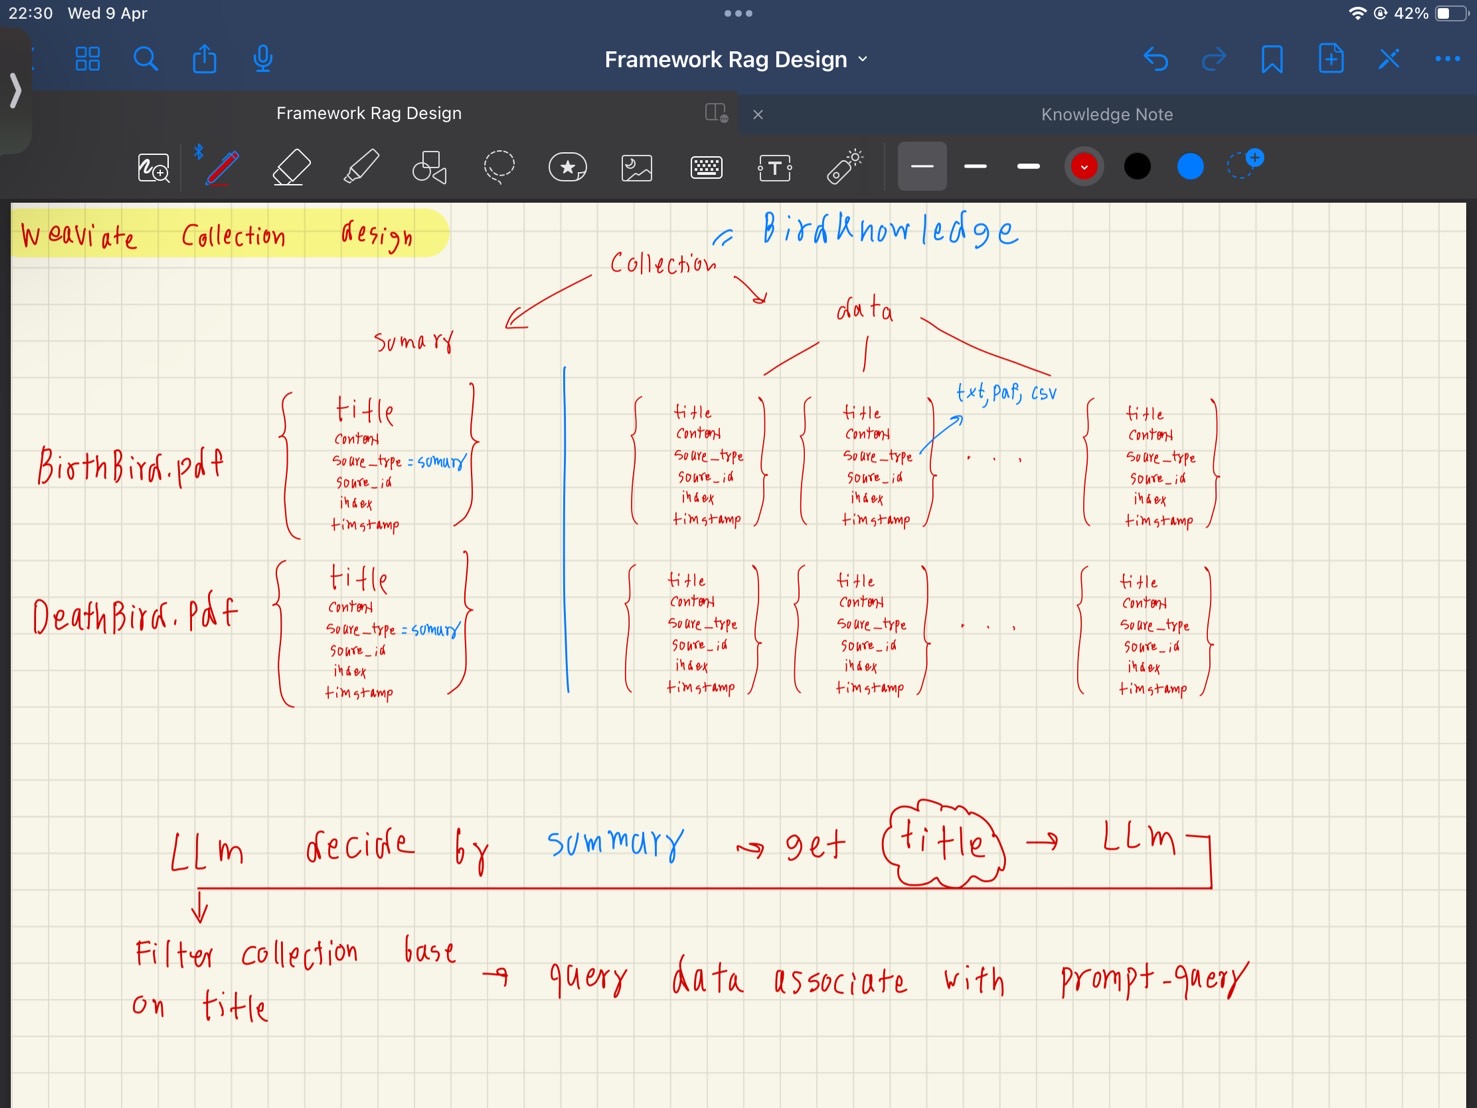 22:30 Wed 9 Apr
42%
Framework Rag Design
Framework Rag Design
Knowledge Note
Weaviate Collection design
BirdKnowledge
Collection
data
sumary
txt, paf, csv
BirthBird.pdf
title
content
soure_type = sumary
soure_id
index
timstamp
title
content
soure_type
soure_id
index
timstamp
title
content
soure_type
soure_id
index
timstamp
. . .
title
content
soure_type
soure_id
index
timstamp
DeathBird.pdf
title
content
soure_type = sumary
soure_id
index
timstamp
title
content
soure_type
soure_id
index
timstamp
title
content
soure_type
soure_id
index
timstamp
. . .
title
content
soure_type
soure_id
index
timstamp
LLm decide by summary → get title → LLm
Filter collection base
on title
→ query data associate with prompt-query